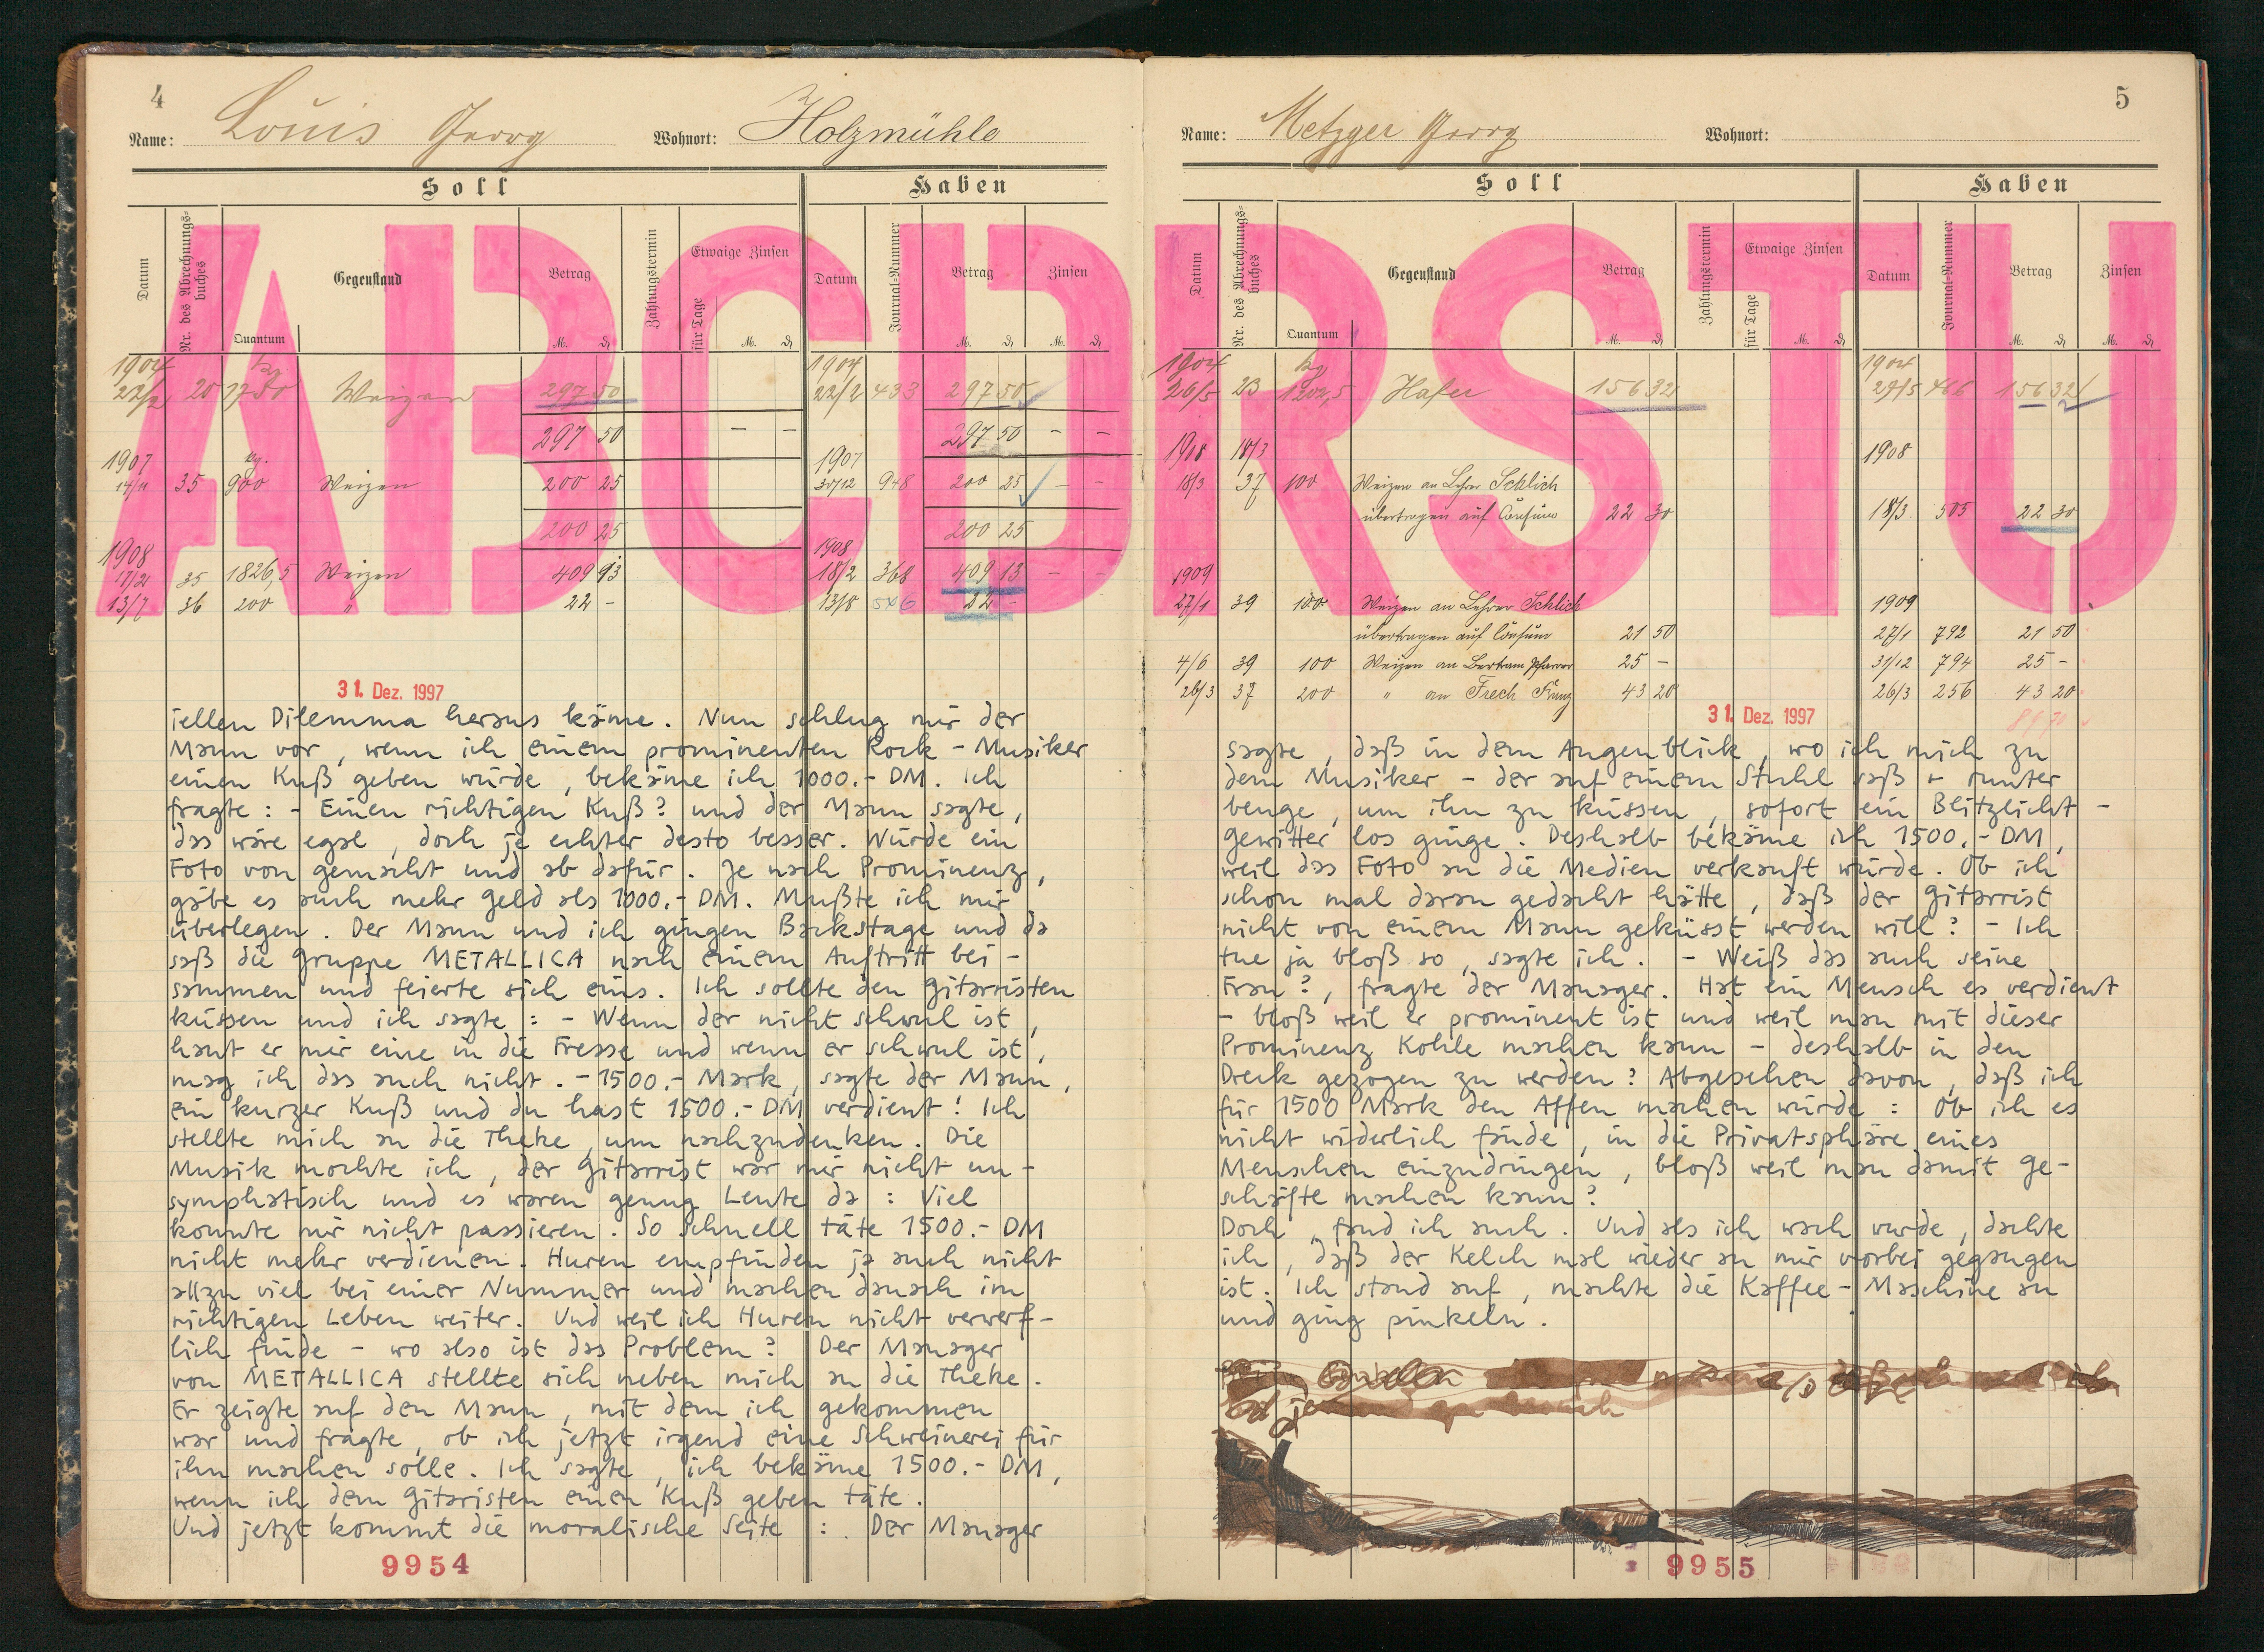 4
Name: Louis Georg Wohnort: Holzmühle
Soll Haben
ABCD
Datum Nr. des Abrechnungs-buches Quantum Gegenstand Betrag M. ₰ Zahlungstermin Etwaige Zinsen für Tage M. ₰ Datum Journal-Nummer Betrag M. ₰ Zinsen M. ₰
1904 kg 1904
22/2 20 1750 Weizen 297 50 22/2 433 297 50
297 50 – – 297 50 – –
1907 kg. 1907
14/11 35 900 Weizen 200 25 30/12 948 200 25 – –
200 25 200 25
1908 1908
17/2 35 1826,5 Weizen 409 93 18/2 368 409 13 – –
13/7 36 200 " 22 – 13/8 546 22 –
31. Dez. 1997
iellen Dilemma heraus käme. Nun schlug mir der
Mann vor, wenn ich einem prominenten Rock-Musiker
einen Kuß geben würde, bekäme ich 1000.- DM. Ich
fragte: - Einen richtigen Kuß? und der Mann sagte,
das wäre egal, doch je echter desto besser. Würde ein
Foto von gemacht und ab dafür. Je nach Prominenz,
gäbe es auch mehr Geld als 1000.- DM. Mußte ich mir
überlegen. Der Mann und ich gingen Backstage und da
saß die Gruppe METALLICA nach einem Auftritt bei-
sammen und feierte sich eins. Ich sollte den Gitarristen
küssen und ich sagte: - Wenn der nicht schwul ist,
haut er mir eine in die Fresse und wenn er schwul ist,
mag ich das auch nicht. - 1500.- Mark, sagte der Mann,
ein kurzer Kuß und du hast 1500.- DM verdient! Ich
stellte mich an die Theke, um nachzudenken. Die
Musik mochte ich, der Gitarrist war mir nicht un-
symphatisch und es waren genug Leute da: Viel
konnte mir nicht passieren. So schnell täte 1500.- DM
nicht mehr verdienen. Huren empfinden ja auch nicht
allzu viel bei einer Nummer und machen danach im
richtigen Leben weiter. Und weil ich Huren nicht verwerf-
lich finde - wo also ist das Problem? Der Manager
von METALLICA stellte sich neben mich an die Theke.
Er zeigte auf den Mann, mit dem ich gekommen
war und fragte, ob ich jetzt irgend eine Schweinerei für
ihn machen solle. Ich sagte, ich bekäme 1500.- DM,
wenn ich dem Gitaristen einen Kuß geben täte.
Und jetzt kommt die moralische Seite: Der Manager
9954
5
Name: Metzger Georg Wohnort:
Soll Haben
RSTU
Datum Nr. des Abrechnungs-buches Quantum Gegenstand Betrag M. ₰ Zahlungstermin Etwaige Zinsen für Tage M. ₰ Datum Journal-Nummer Betrag M. ₰ Zinsen M. ₰
1904 kg 1904
26/5 23 1202,5 Hafer 156 32 29/5 466 156 32
1908 18/3 1908
18/3 37 100 Weizen an Lehrer Schlich
übertragen auf Consum 22 30 18/3 505 22 30
1909
27/1 39 100 Weizen an Lehrer Schlich 1909
übertragen auf Consum 21 50 27/1 792 21 50
4/6 39 100 Weizen an Bertram Pfarrer 25 – 31/12 794 25 –
26/3 37 200 " an Frech 43 20 26/3 256 43 20
31. Dez. 1997
sagte, daß in dem Augenblick, wo ich mich zu
dem Musiker - der auf einem Stuhl saß + runter
beuge, um ihn zu küssen, sofort ein Blitzlicht-
gewitter los ginge. Deshalb bekäme ich 1500.- DM,
weil das Foto an die Medien verkauft würde. Ob ich
schon mal daran gedacht hätte, daß der Gitarrist
nicht von einem Mann geküsst werden will? - Ich
tue ja bloß so, sagte ich. - Weiß das auch seine
Frau?, fragte der Manager. Hat ein Mensch es verdient
- bloß weil er prominent ist und weil man mit dieser
Prominenz Kohle machen kann - deshalb in den
Dreck gezogen zu werden? Abgesehen davon, daß ich
für 1500 Mark den Affen machen würde: Ob ich es
nicht widerlich fände, in die Privatsphäre eines
Menschen einzudringen, bloß weil man damit Ge-
schäfte machen kann?
Doch, fand ich auch. Und als ich wach wurde, dachte
ich, daß der Kelch mal wieder an mir vorbei gegangen
ist. Ich stand auf, machte die Kaffee-Maschine an
und ging pinkeln.
9955